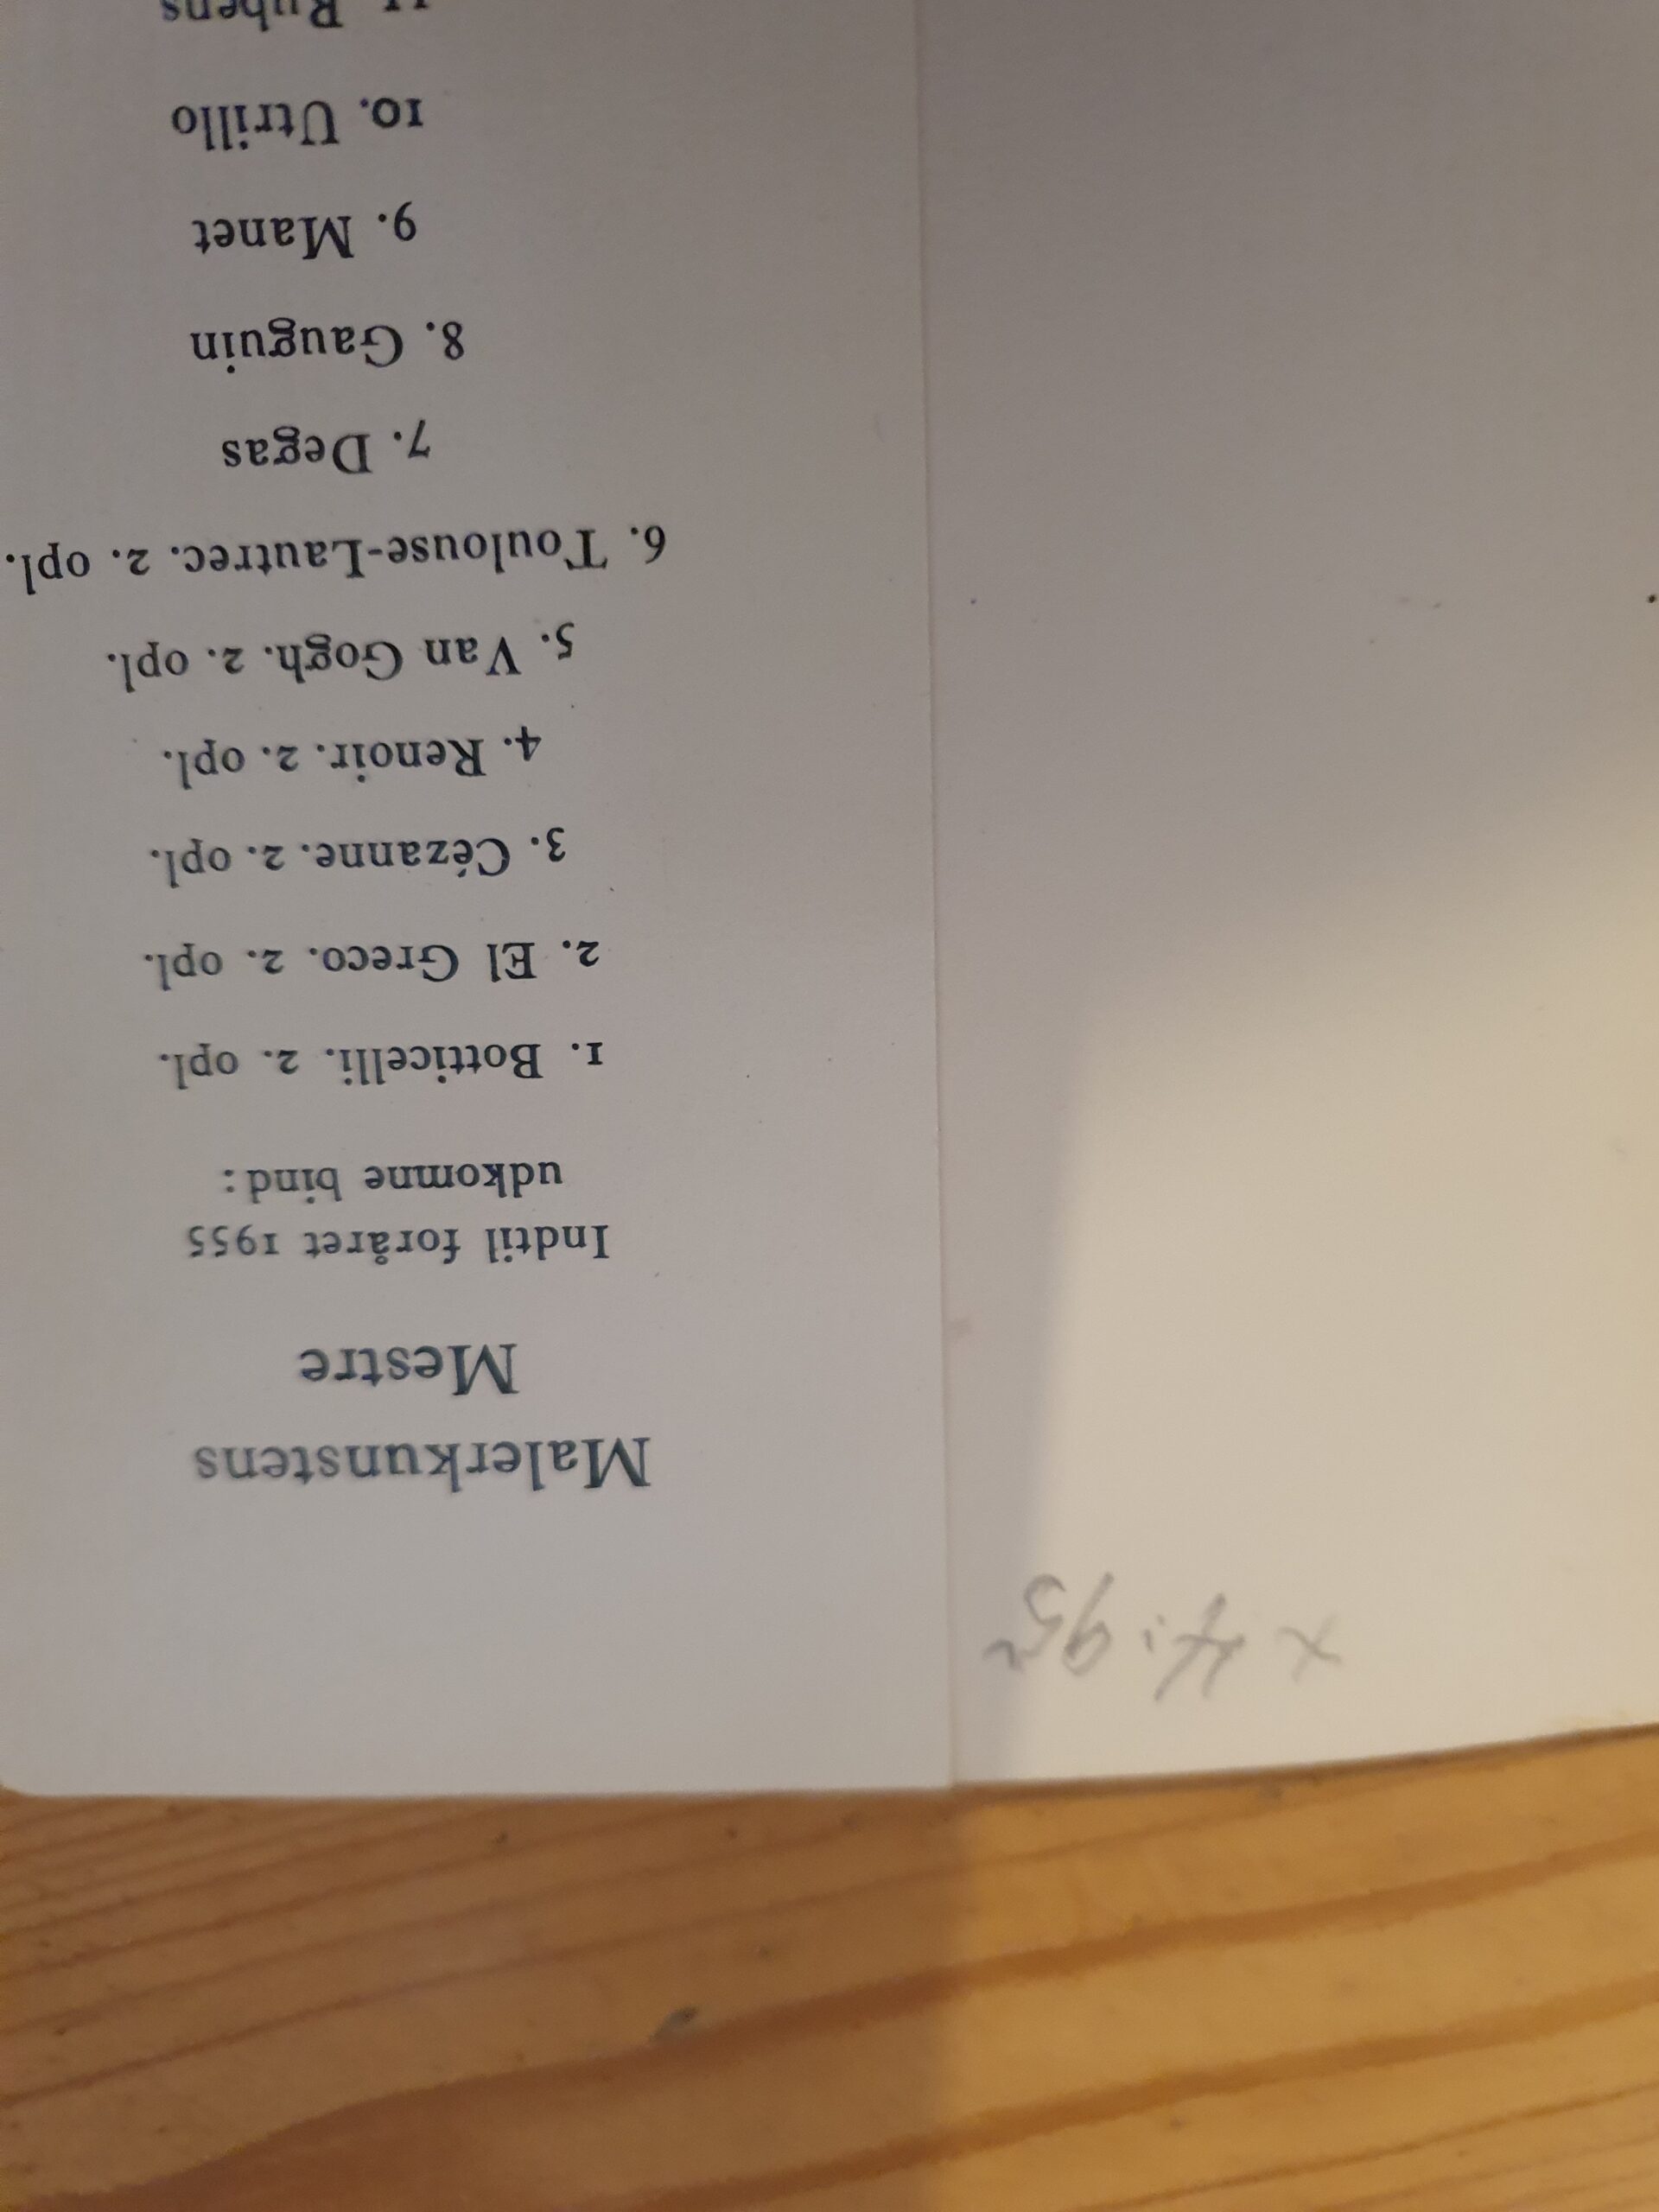 x 4.95
Malerkunstens
Mestre
Indtil foråret 1955
udkomne bind:
1. Botticelli. 2. opl.
2. El Greco. 2. opl.
3. Cézanne. 2. opl.
4. Renoir. 2. opl.
5. Van Gogh. 2. opl.
6. Toulouse-Lautrec. 2. opl.
7. Degas
8. Gauguin
9. Manet
10. Utrillo
11. Rubens